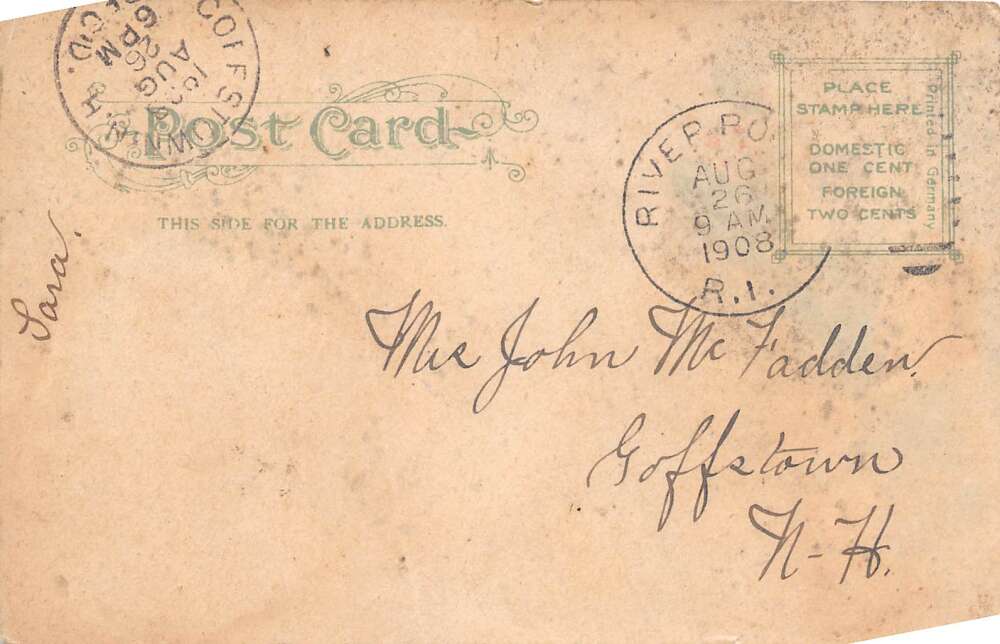 GOFFSTOWN
AUG
26
6 PM
N.H.
REC'D.
Post Card
THIS SIDE FOR THE ADDRESS.
RIVER PO
AUG
26
9 AM
1908
R.I.
PLACE
STAMP HERE
DOMESTIC
ONE CENT
FOREIGN
TWO CENTS
Printed in Germany
Sara.
Mrs John McFadden.
Goffstown
N-H.